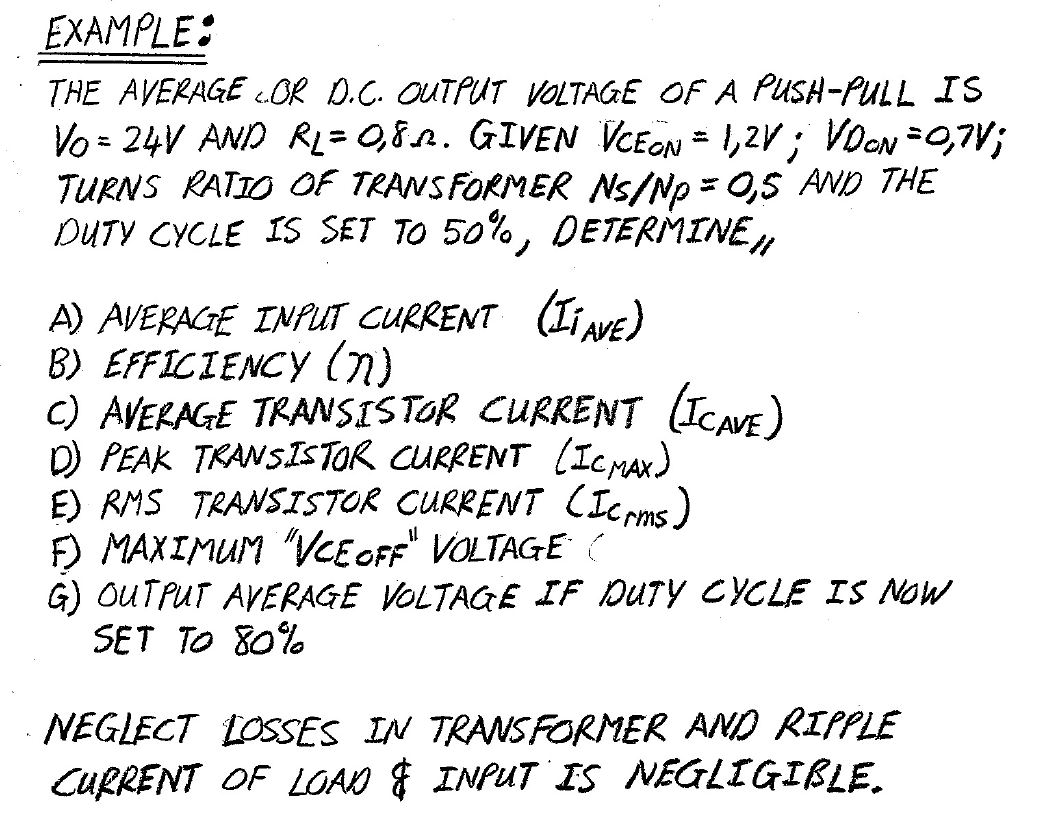 EXAMPLE:
THE AVERAGE OR D.C. OUTPUT VOLTAGE OF A PUSH-PULL IS
Vo = 24V AND RL = 0,8Ω. GIVEN VCEON = 1,2V; VDON = 0,7V;
TURNS RATIO OF TRANSFORMER Ns/Np = 0,5 AND THE
DUTY CYCLE IS SET TO 50%, DETERMINE,,
A) AVERAGE INPUT CURRENT (IiAVE)
B) EFFICIENCY (η)
C) AVERAGE TRANSISTOR CURRENT (ICAVE)
D) PEAK TRANSISTOR CURRENT (ICMAX)
E) RMS TRANSISTOR CURRENT (ICrms)
F) MAXIMUM "VCEOFF" VOLTAGE (
G) OUTPUT AVERAGE VOLTAGE IF DUTY CYCLE IS NOW
SET TO 80%
NEGLECT LOSSES IN TRANSFORMER AND RIPPLE
CURRENT OF LOAD & INPUT IS NEGLIGIBLE.